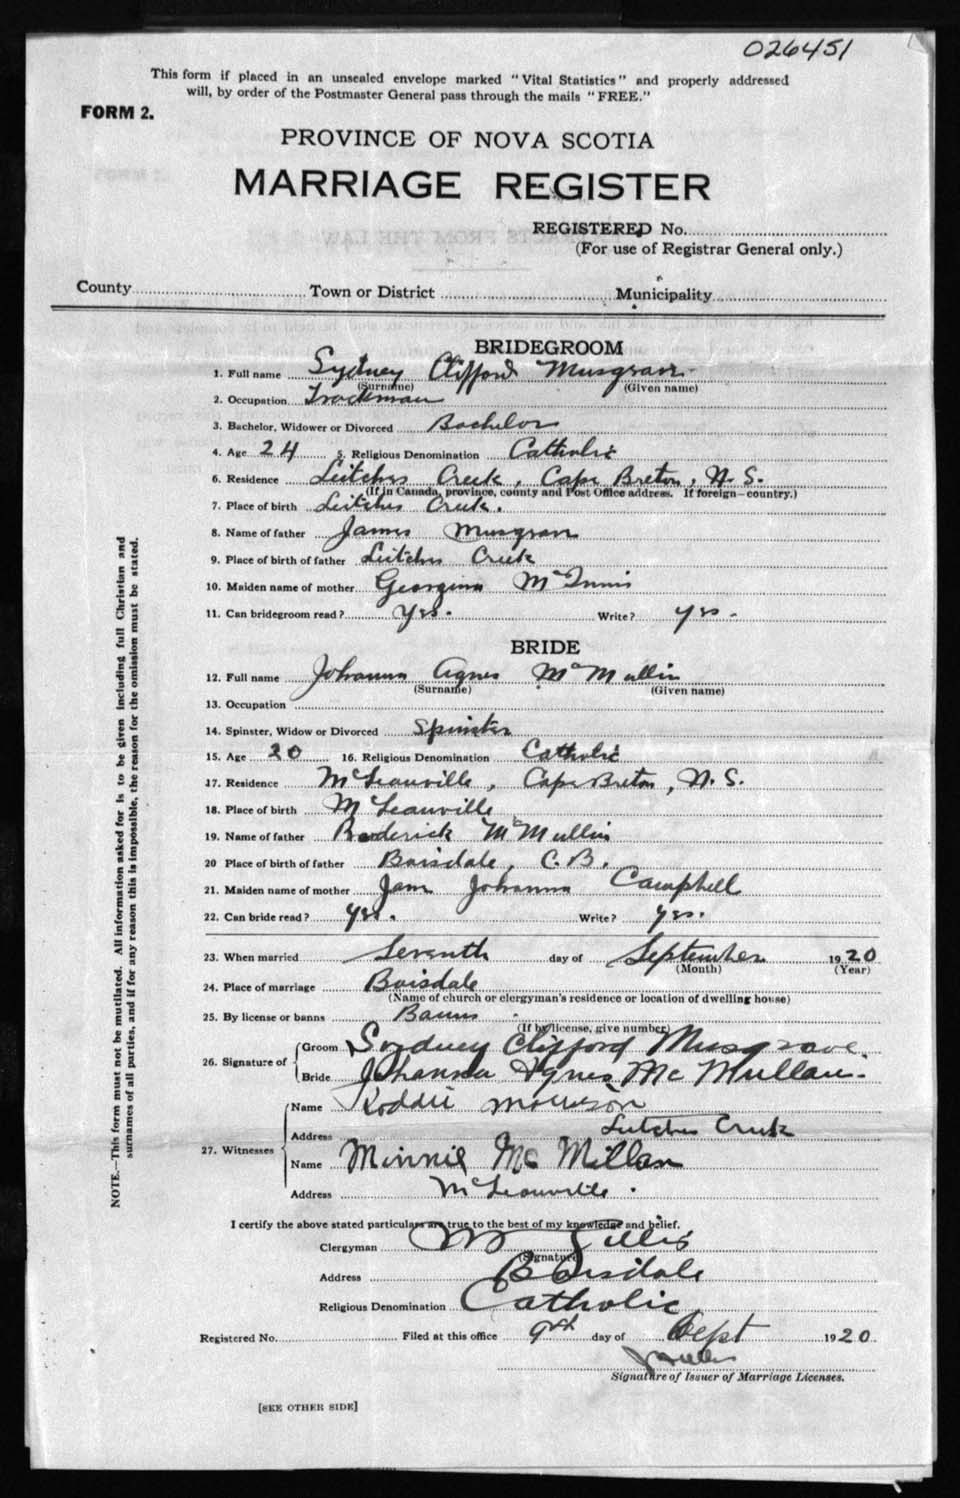 026451
This form if placed in an unsealed envelope marked "Vital Statistics" and properly addressed
will, by order of the Postmaster General pass through the mails "FREE."
FORM 2.
PROVINCE OF NOVA SCOTIA
MARRIAGE REGISTER
REGISTERED No.
(For use of Registrar General only.)
County Town or District Municipality
BRIDEGROOM
1. Full name Sydney Clifford Musgrave
(Surname) (Given name)
2. Occupation Trackman
3. Bachelor, Widower or Divorced Bachelor
4. Age 24 5. Religious Denomination Catholic
6. Residence Leitches Creek, Cape Breton, N.S.
(If in Canada, province, county and Post Office address. If foreign—country.)
7. Place of birth Leitches Creek.
8. Name of father James Musgrave
9. Place of birth of father Leitches Creek
10. Maiden name of mother Georgina McInnis
11. Can bridegroom read? Yes. Write? yes.
BRIDE
12. Full name Johanna Agnes McMullin
(Surname) (Given name)
13. Occupation
14. Spinster, Widow or Divorced Spinster
15. Age 20 16. Religious Denomination Catholic
17. Residence McLeanville, Cape Breton, N.S.
18. Place of birth McLeanville
19. Name of father Roderick McMullin
20 Place of birth of father Boisdale, C.B.
21. Maiden name of mother Jane Johanna Campbell
22. Can bride read? yes. Write? yes.
23. When married Seventh day of September 1920
(Month) (Year)
24. Place of marriage Boisdale
(Name of church or clergyman's residence or location of dwelling house)
25. By license or banns Banns
(If by license, give number)
26. Signature of Groom Sydney Clifford Musgrave.
Bride Johanna Agnes McMullan.
27. Witnesses Name Roddie Morrison
Address Leitches Creek
Name Minnie McMillan
Address McLeanville.
I certify the above stated particulars are true to the best of my knowledge and belief.
Clergyman M Gillis
(Signature)
Address Boisdale
Religious Denomination Catholic
Registered No. Filed at this office 9th day of Sept 1920
Signature of Issuer of Marriage Licenses.
[SEE OTHER SIDE]
NOTE.—This form must not be mutilated. All information asked for is to be given including full Christian and
surnames of all parties, and if for any reason this is impossible, the reason for the omission must be stated.